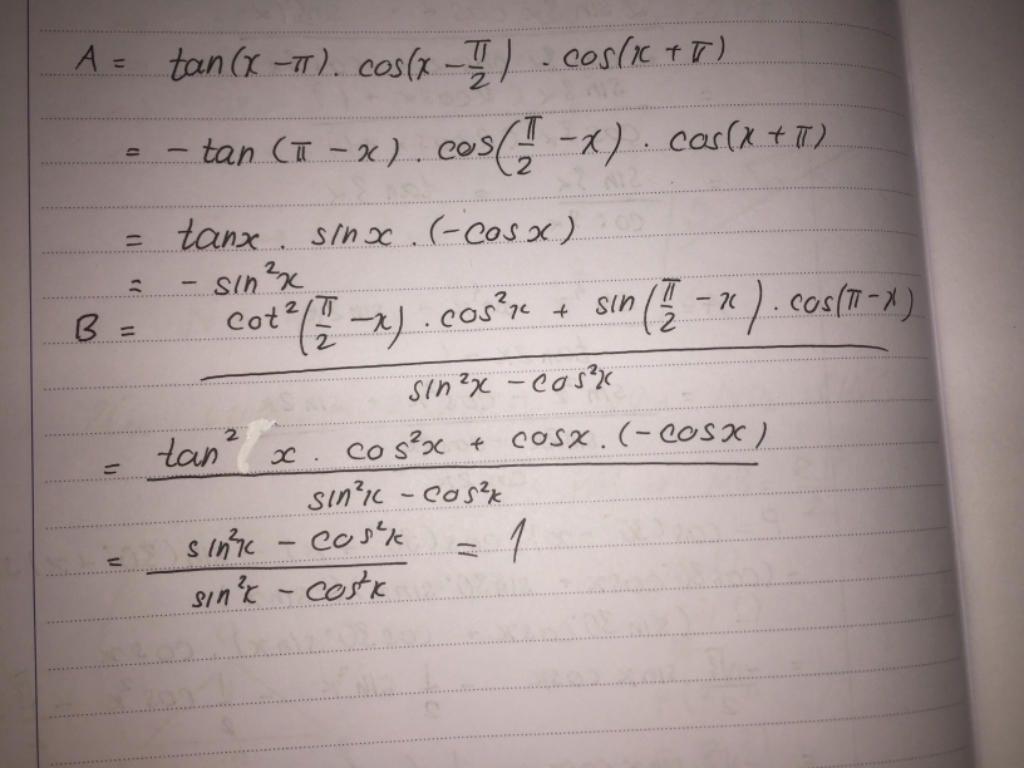 A = tan(x - π). cos(x - π/2) . cos(x + π)
= - tan (π - x) . cos(π/2 - x) . cos(x + π)
= tanx . sinx . (-cosx)
= - sin²x
B = (cot²(π/2 - x) . cos²x + sin(π/2 - x) . cos(π - x)) / (sin²x - cos²x)
= (tan² x . cos²x + cosx . (-cosx)) / (sin²x - cos²x)
= (sin²x - cos²x) / (sin²x - cos²x) = 1